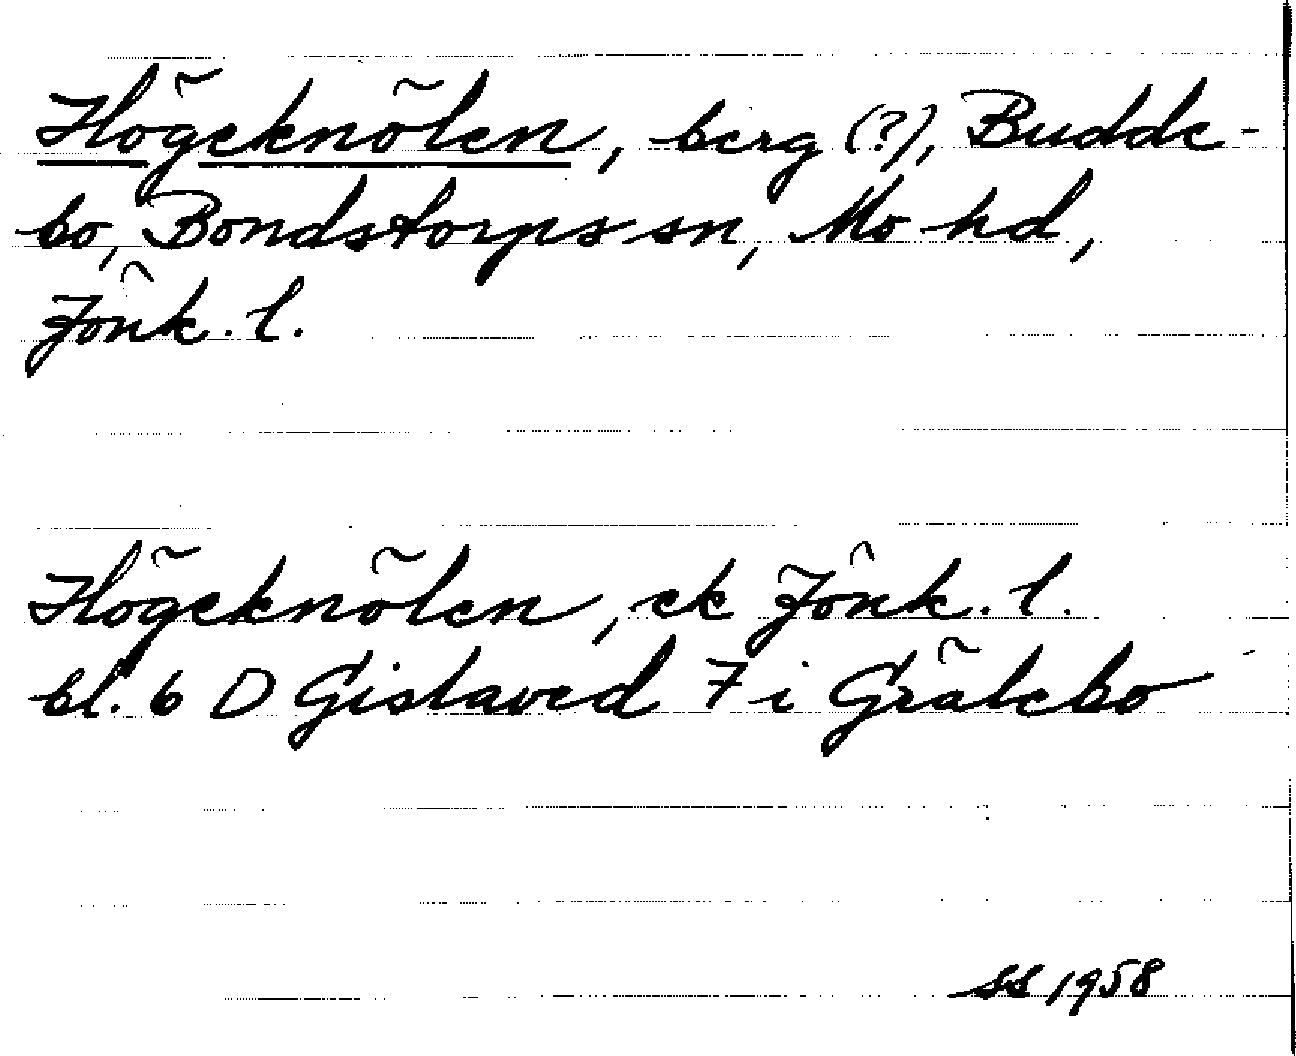 Högeknölen, berg (?), Budde-
bo, Bondstorps sn, Mo hd,
Jönk. l.
Högeknölen, ek Jönk. l.
bl. 6 D Gislaved 7 i Grälebo
SS 1958